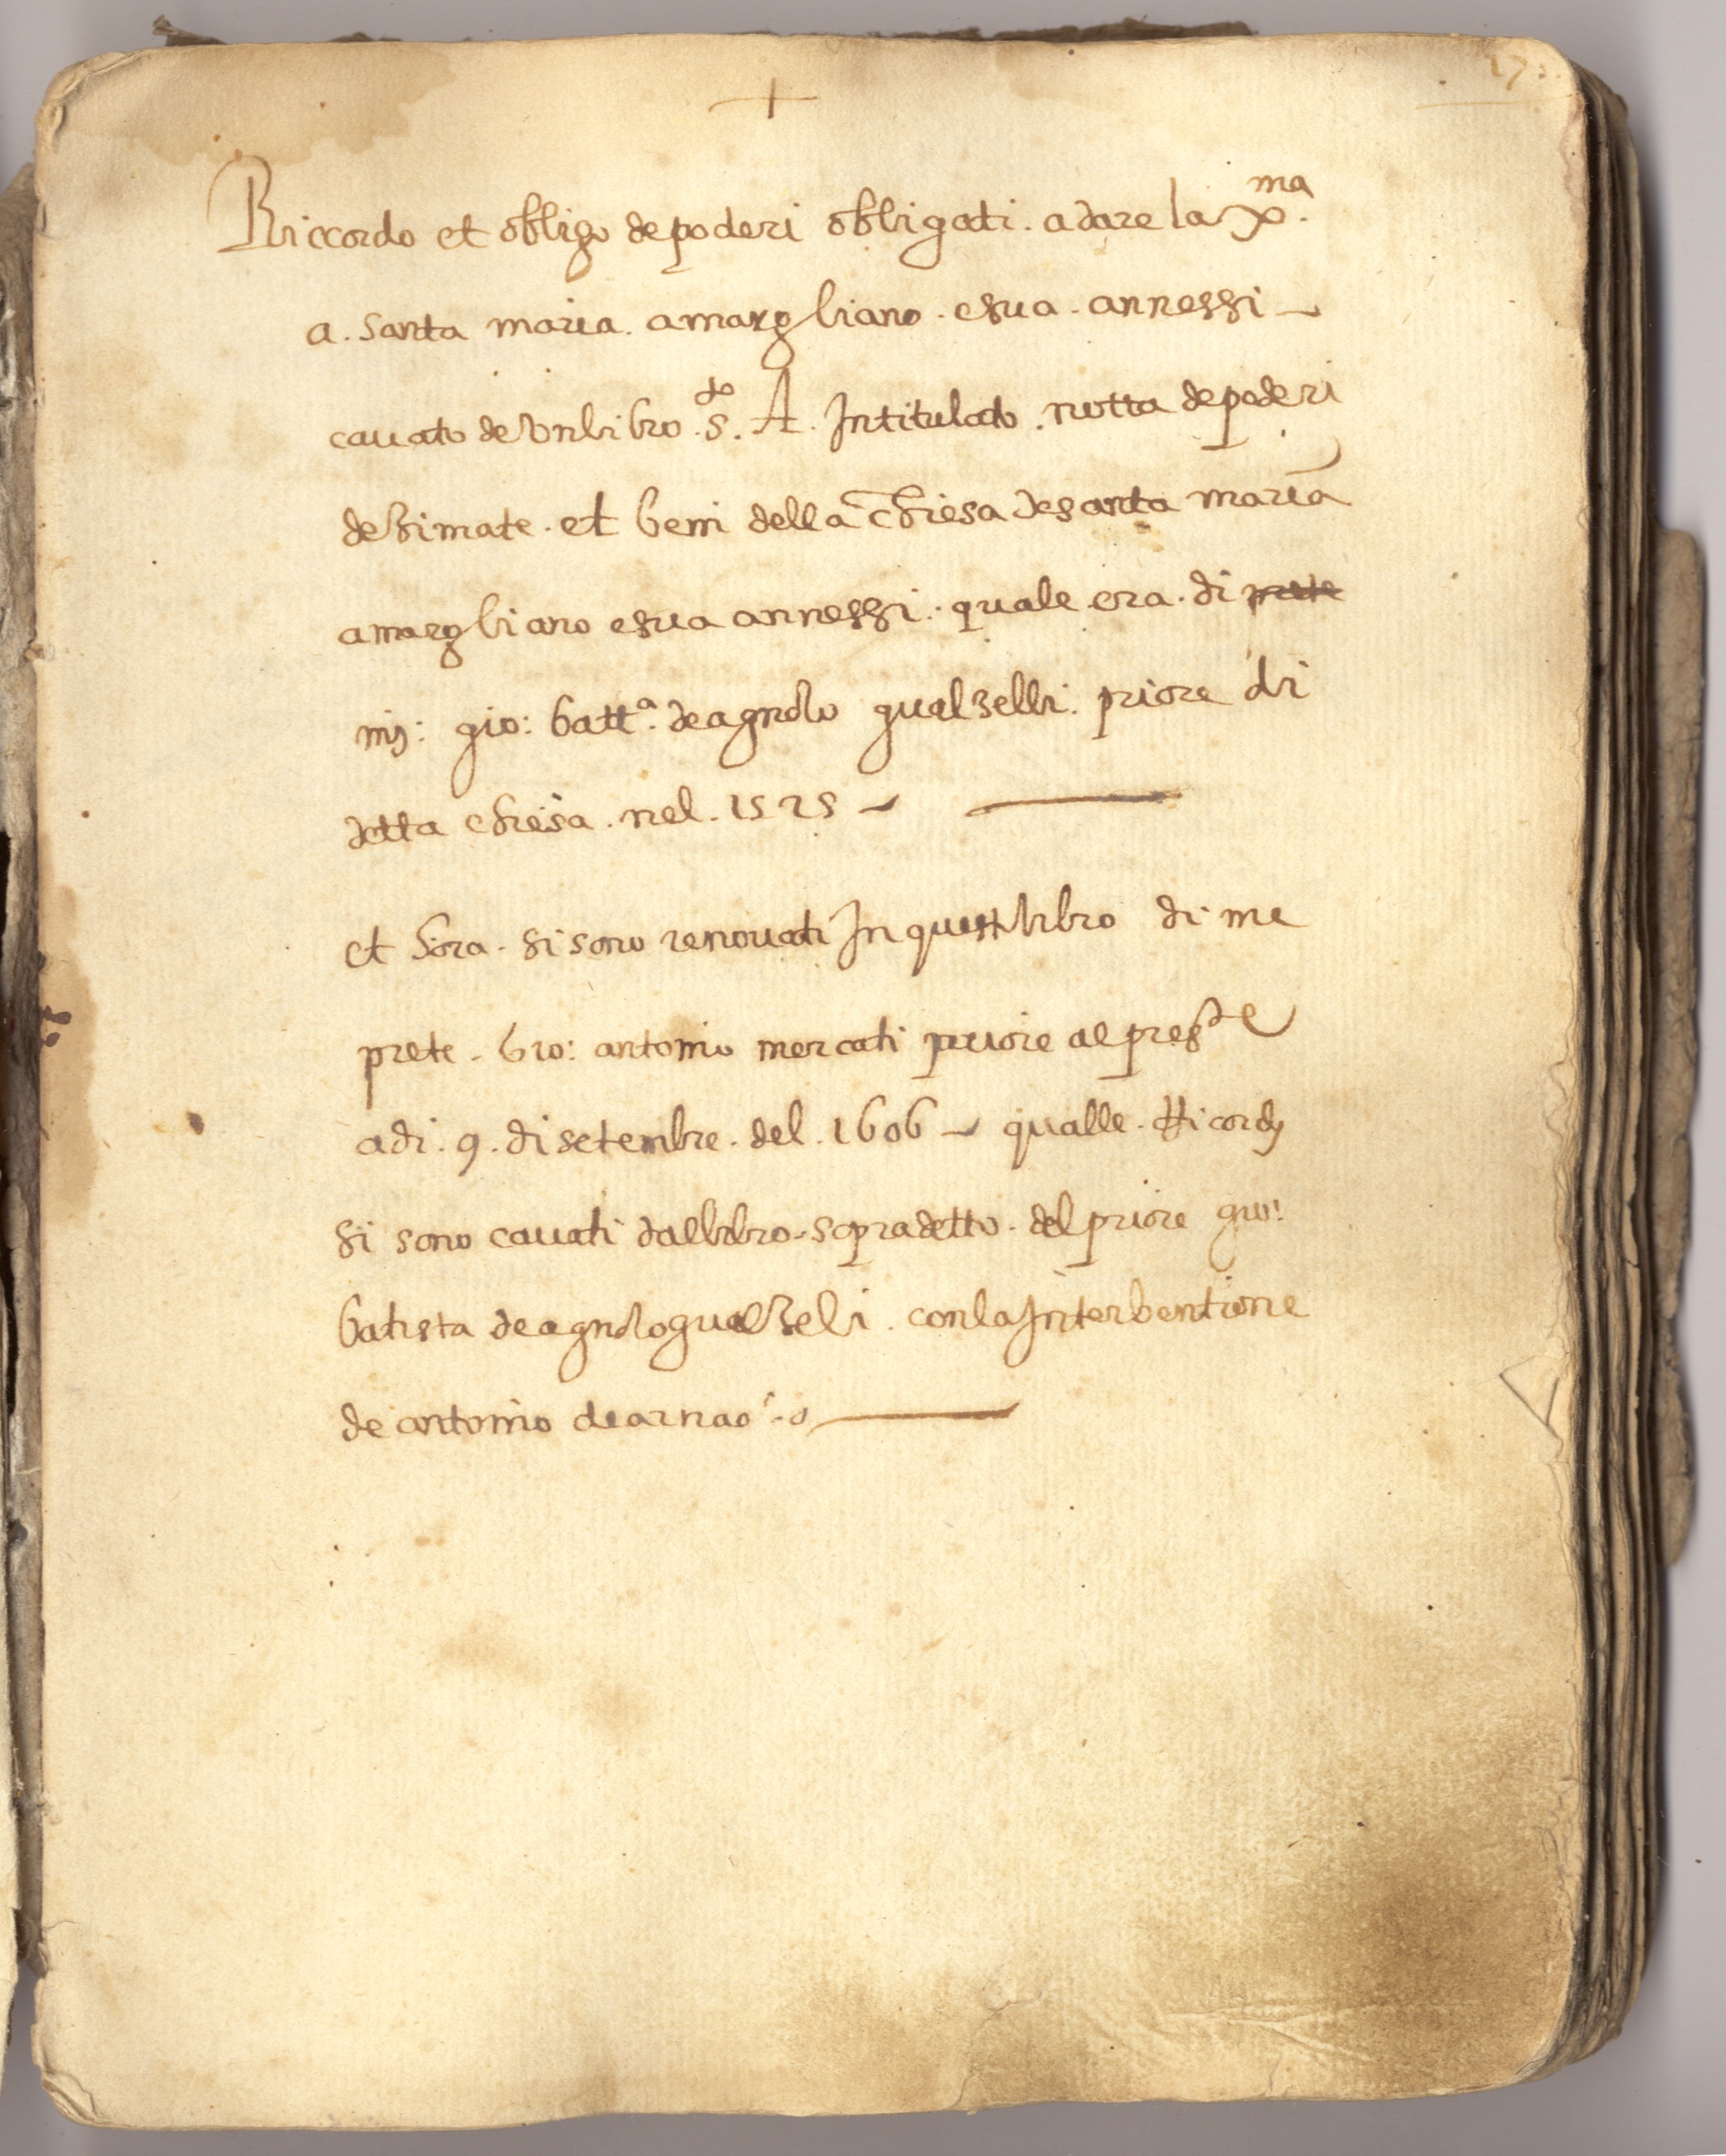 17:
+
Riccordo et obligo de poderi obligati. a dare la Xma.
a. santa maria. a margliano. e sua. annessi
cauato de un libro. s.to A. Intitulato. notta de poderi
dezimate. et beni della chiesa de santa maria
a margliano e sua annessi. quale era. di prete
ms: gio: batta. de agnolo gualzelli. priore di
detta chiesa. nel. 1525
et hora. si sono renouati In quest libro di me
prete. Gio: antonio mercati priore al preste
adi. 9. di setembre. del. 1606 qualle. Ricordj
si sono cauati dal libro. sopradetto. del priore gio:
batista de agnolo gualzeli. con la Interbentione
de antonio de arnao